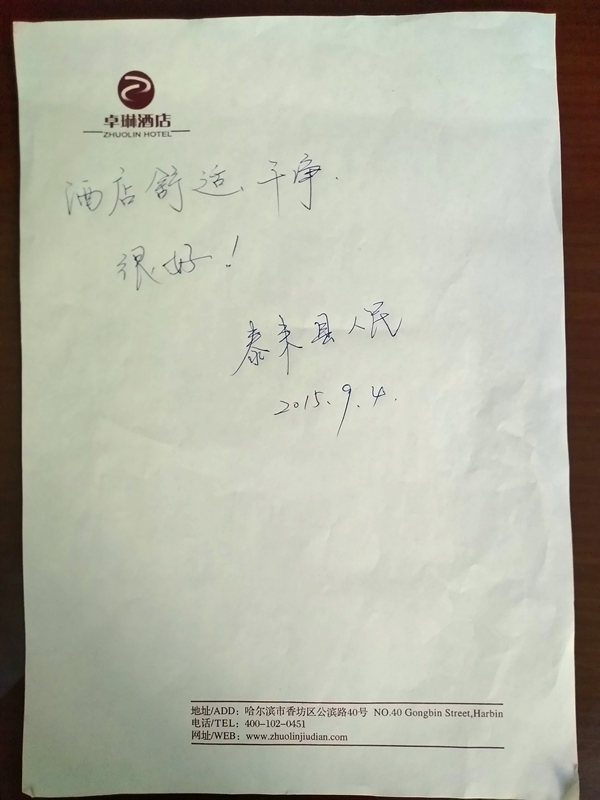 卓琳酒店
ZHUOLIN HOTEL
酒店舒适干净.
很好!
泰来县人民
2015.9.4.
地址/ADD: 哈尔滨市香坊区公滨路40号 NO.40 Gongbin Street,Harbin
电话/TEL: 400-102-0451
网址/WEB: www.zhuolinjiudian.com